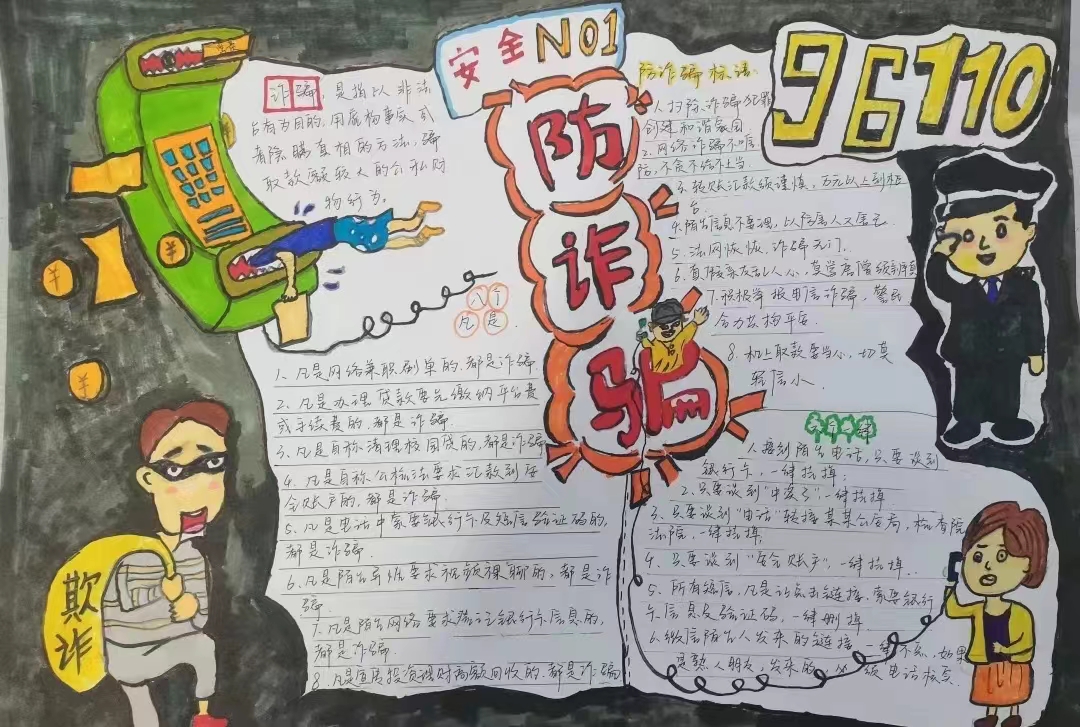 安全NO1
防诈骗
96110
诈骗,是指以非法
占有为目的,用虚构事实或
者隐瞒真相的方法,骗
取款额较大的公私财
物行为。
八个
凡是
1、凡是网络兼职刷单的,都是诈骗.
2、凡是办理贷款要先缴纳平台费
或手续费的,都是诈骗.
3、凡是自称清理校园贷的,都是诈骗
4、凡是自称公检法要求汇款到安
全账户的,都是诈骗.
5、凡是电话中索要银行卡及短信验证码的,
都是诈骗.
6、凡是陌生异性要求视频裸聊的,都是诈
骗.
7、凡是陌生网络要求登记银行卡信息的,
都是诈骗.
8、凡是宣传投资理财高额回收的,都是诈骗
欺诈
防诈骗标语:
1.扫除诈骗犯罪
创建和谐氛围
2.网络诈骗不难
防,不贪不给不上当
3.转账汇款须谨慎,万元以上到柜
台.
4.陌生信息不要理,以防害人又害己
5.法网恢恢,诈骗无门.
6.
7.积极举报电信诈骗,警民
合力共构平安.
8.机上取款要当心,切莫
1.接到陌生电话,只要谈到
银行卡,一律挂掉;
2.只要谈到"中奖了"一律挂掉
3.只要谈到"电话"转接某某公安局,检查院
法院,一律挂掉
4.只要谈到"安全账户",一律挂掉.
5.所有短信,凡是让点击链接,索要银行
卡信息及验证码,一律删掉
6.微信陌生人发来的链接一律不点,如果
是熟人朋友,发来的,必须电话核实.